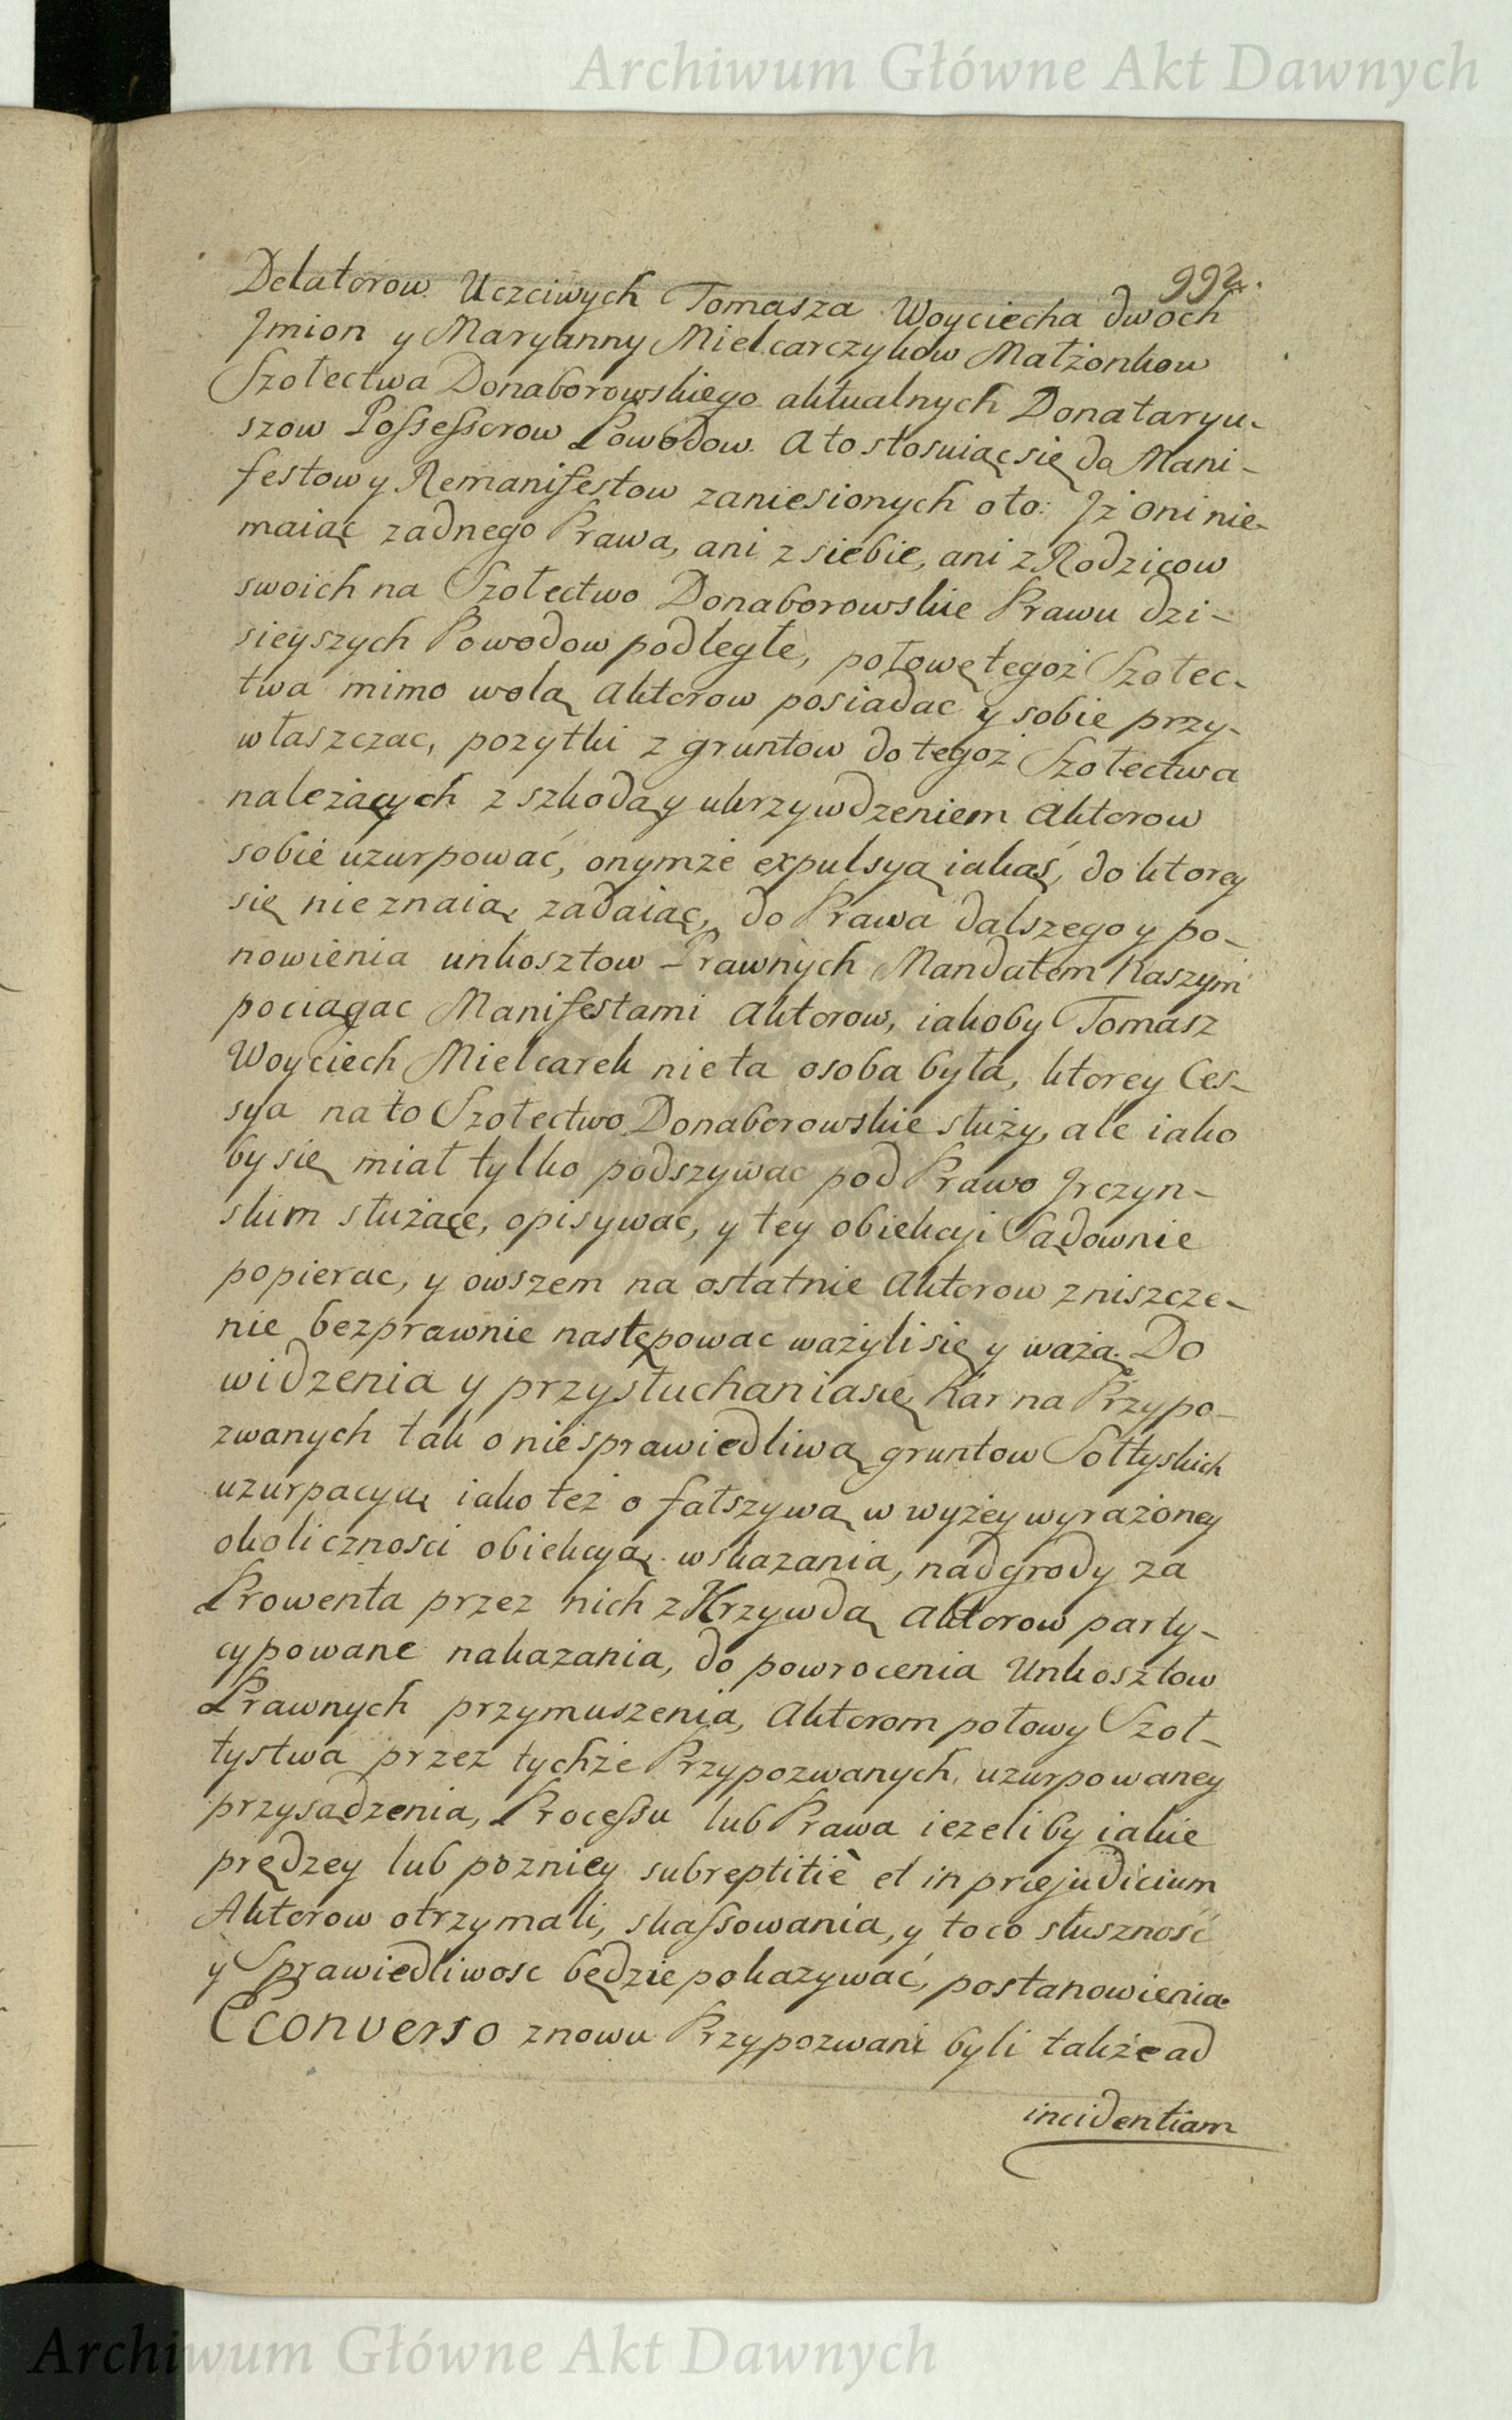 Archiwum Główne Akt Dawnych
992.
Delatorow Uczciwych Tomasza Woyciecha dwoch
Jmion y Maryanny Mielcarczykow Małżonkow
Szołectwa Donaborowskiego aktualnych Donataryu-
szow Possessorow Powodow. A to stosuiąc się do Mani-
festow y Remanifestow zaniesionych oto: Jż oni nie-
maiąc zadnego Prawa, ani z siebie, ani z Rodzicow
swoich na Szołectwo Donaborowskie Prawu dzi-
sieyszych Powodow podległe, połowę tegoż Szołec-
twa mimo wolą Aktorow posiadac y sobie przy-
właszczac, pozytki z gruntow do tegoż Szołectwa
należących z szkodą y ukrzywdzeniem Aktorow
sobie uzurpować, onymże expulsyą iakąś, do ktorey
się nie znaią, zadaiąc, do Prawa dalszego y po-
nowienia unkosztow Prawnych Mandatem Naszym
pociągac Manifestami Aktorow, iakoby Tomasz
Woyciech Mielcarek nie ta osoba była, ktorey Ces-
sya na to Szołectwo Donaborowskie służy, ale iako
by się miał tylko podszywac pod Prawo Jrczyn-
skim służące, opisywac, y tey obiekcji Sądownie
popierac, y owszem na ostatnie Aktorow zniszcze-
nie bezprawnie następowac ważyli się y ważą. Do
widzenia y przysłuchania się Kar na Przypo-
zwanych tak o niesprawiedliwą gruntow Sołtyskich
uzurpacyą, iako też o fałszywą w wyżey wyrażoney
okoliczności obiekcyą wskazania, nadgrody za
Prowenta przez nich z Krzywdą Aktorow party-
cypowane nakazania, do powrocenia Unkosztow
Prawnych przymuszenia, Aktorom połowy Szoł-
tystwa przez tychże Przypozwanych uzurpowaney
przysądzenia, Processu lub Prawa ieżeliby iakie
prędzey lub pozniey subreptitiè et in præjudicium
Aktorow otrzymali, skassowania, y to co słuszność
y Sprawiedliwosc będzie pokazywać, postanowienia.
Econverso znowu Przypozwani byli także ad
incidentiam
Archiwum Główne Akt Dawnych